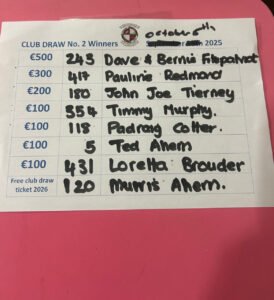 October 5th
CLUB DRAW No. 2 Winners September 2025
€500 243 Dave & Bernie Fitzpatrick
€300 417 Pauline Redmond
€200 180 John Joe Tierney
€100 354 Timmy Murphy.
€100 118 Padraig Cotter.
€100 5 Ted Ahern
€100 431 Loretta Brouder
Free club draw ticket 2026 120 Murris Ahern.